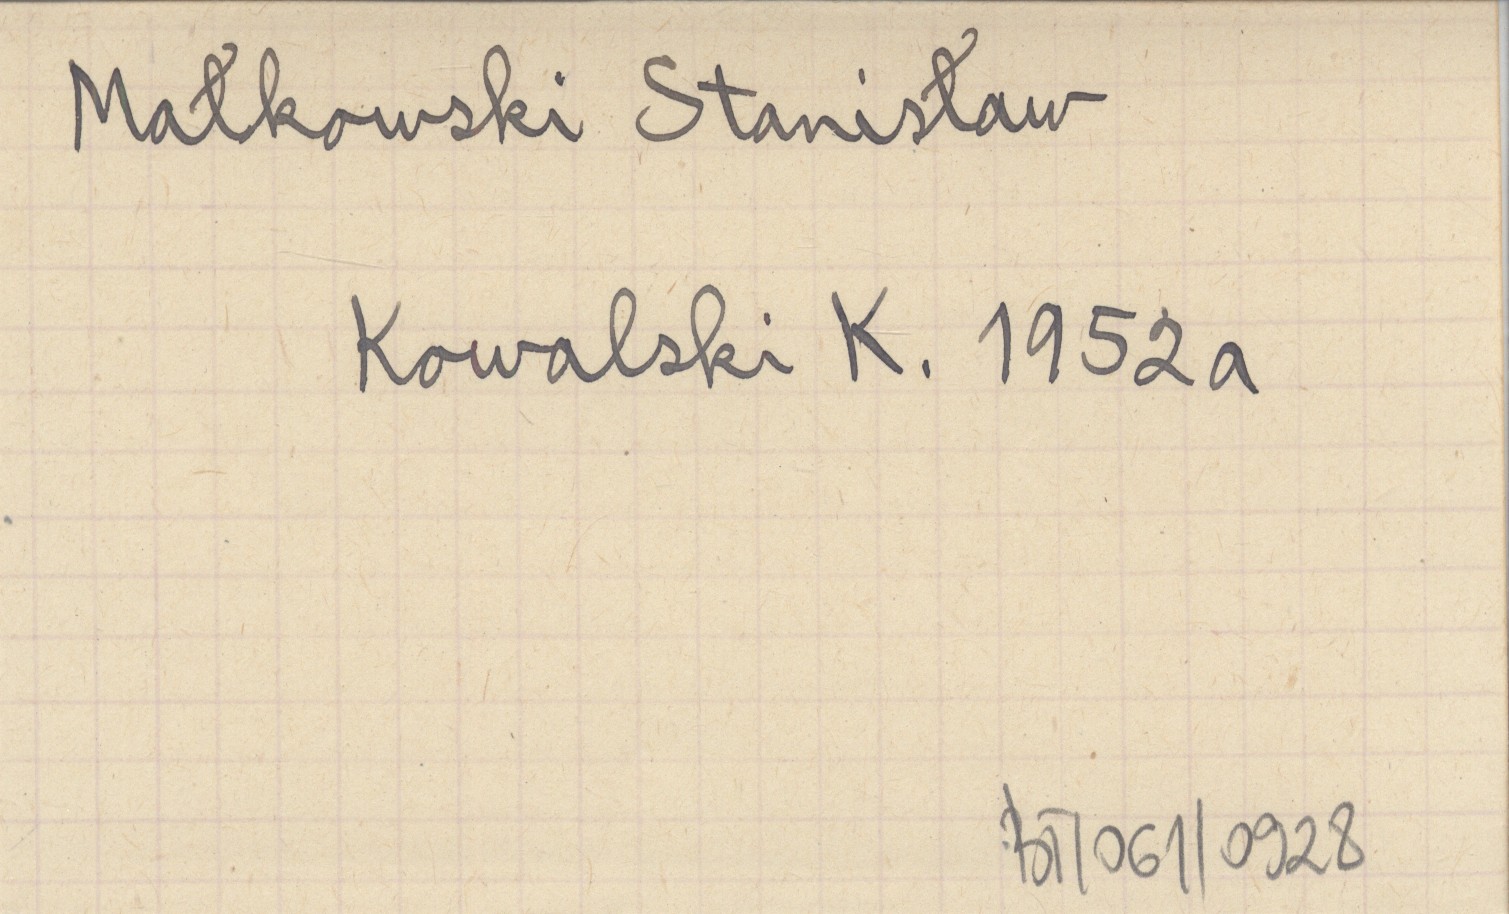 Małkowski Stanisław
Kowalski K. 1952a
/061/0928